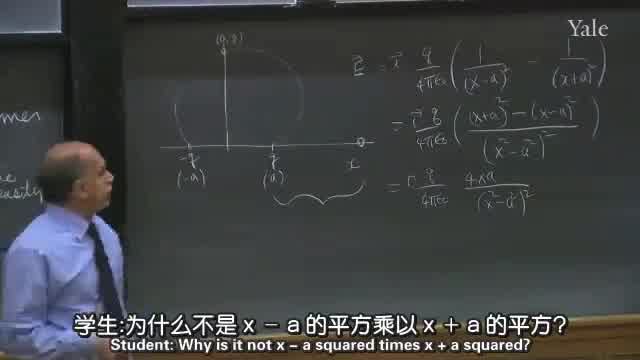 Yale
(0, y)
E⃗ = i⃗ q/4πε₀ (1/(x-a)² - 1/(x+a)²)
= i⃗ q/4πε₀ ((x+a)² - (x-a)² / (x²-a²)²)
= i⃗ q/4πε₀ 4xa/(x²-a²)²
-q
q
x
(-a)
(a)
学生:为什么不是 x - a 的平方乘以 x + a 的平方?
Student: Why is it not x - a squared times x + a squared?